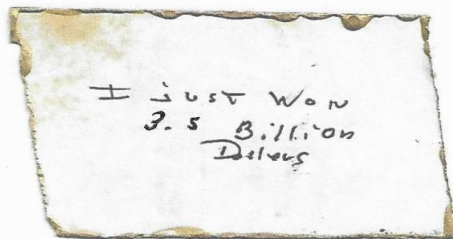 I just Won
3.5 Billion
Dollers